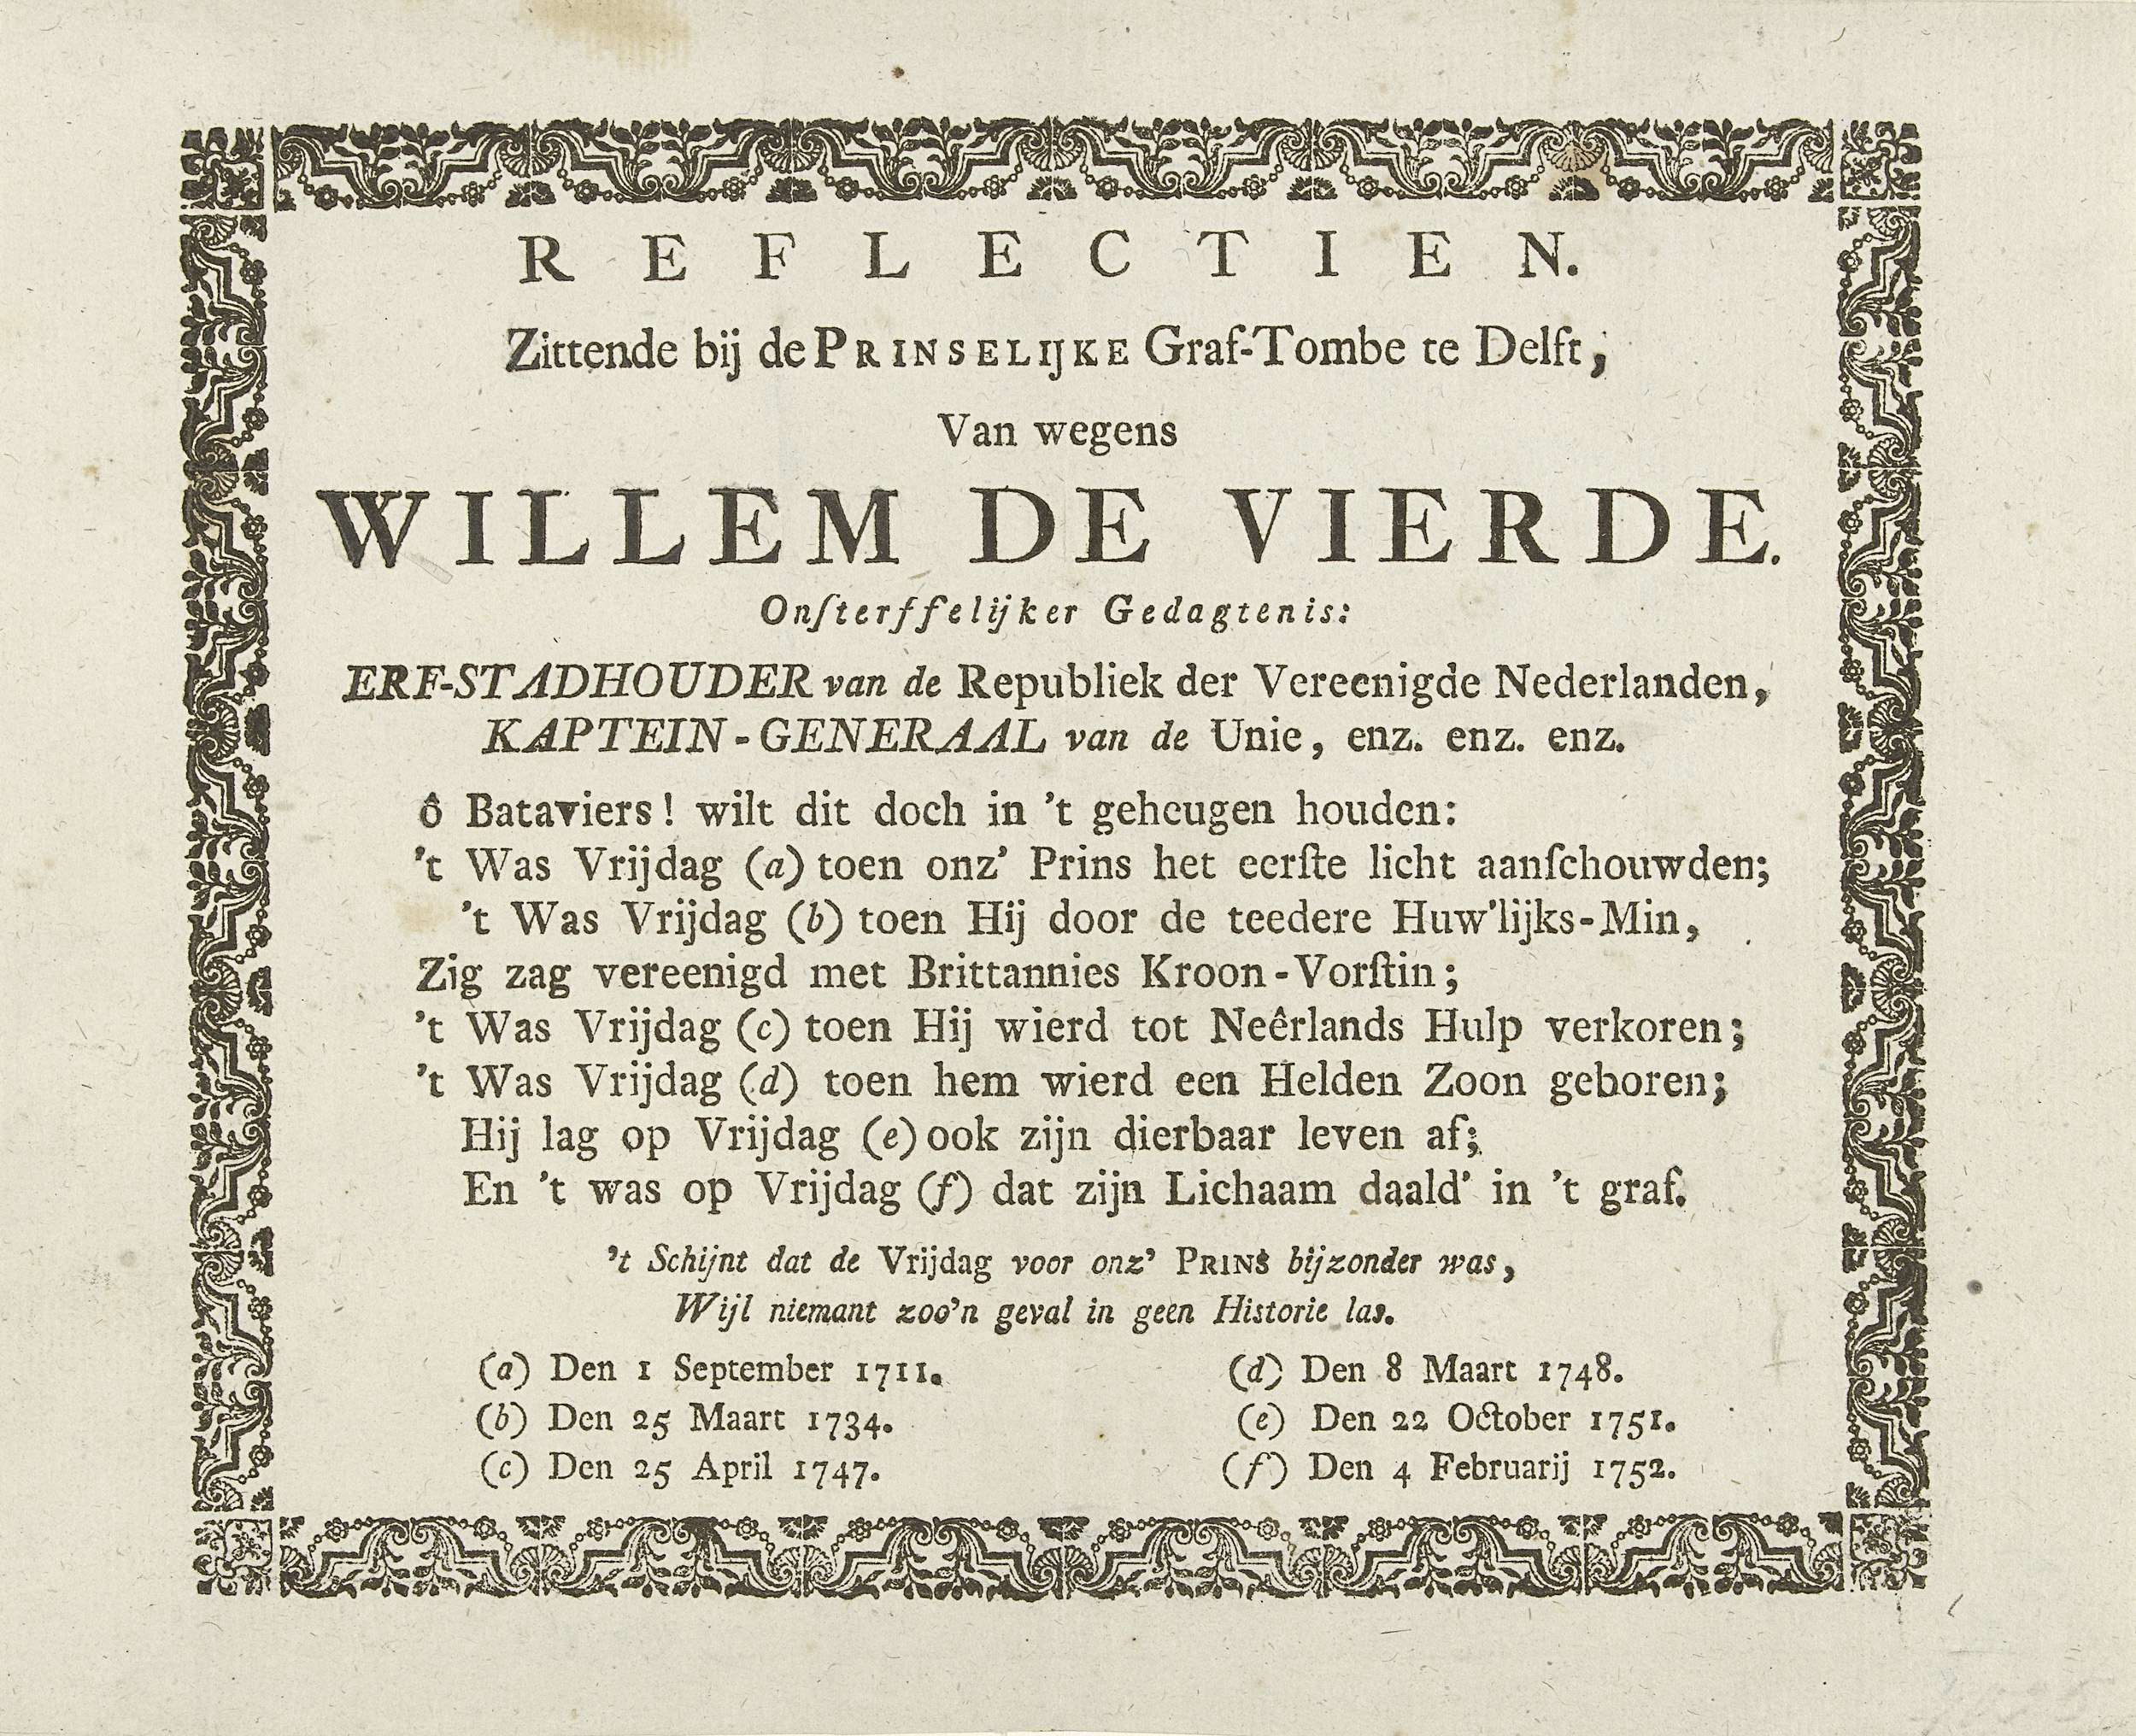 REFLECTIEN.
Zittende bij de PRINSELIJKE Graf-Tombe te Delft,
Van wegens
WILLEM DE VIERDE.
Onſterffelijker Gedagtenis:
ERF-STADHOUDER van de Republiek der Vereenigde Nederlanden,
KAPTEIN-GENERAAL van de Unie, enz. enz. enz.
ô Bataviers! wilt dit doch in 't geheugen houden:
't Was Vrijdag (a) toen onz' Prins het eerſte licht aanſchouwden;
't Was Vrijdag (b) toen Hij door de teedere Huw'lijks-Min,
Zig zag vereenigd met Brittannies Kroon-Vorſtin;
't Was Vrijdag (c) toen Hij wierd tot Neêrlands Hulp verkoren;
't Was Vrijdag (d) toen hem wierd een Helden Zoon geboren;
Hij lag op Vrijdag (e) ook zijn dierbaar leven af;
En 't was op Vrijdag (f) dat zijn Lichaam daald' in 't graf.
't Schijnt dat de Vrijdag voor onz' PRINS bijzonder was,
Wijl niemant zoo'n geval in geen Historie las.
(a) Den 1 September 1711.
(b) Den 25 Maart 1734.
(c) Den 25 April 1747.
(d) Den 8 Maart 1748.
(e) Den 22 October 1751.
(f) Den 4 Februarij 1752.